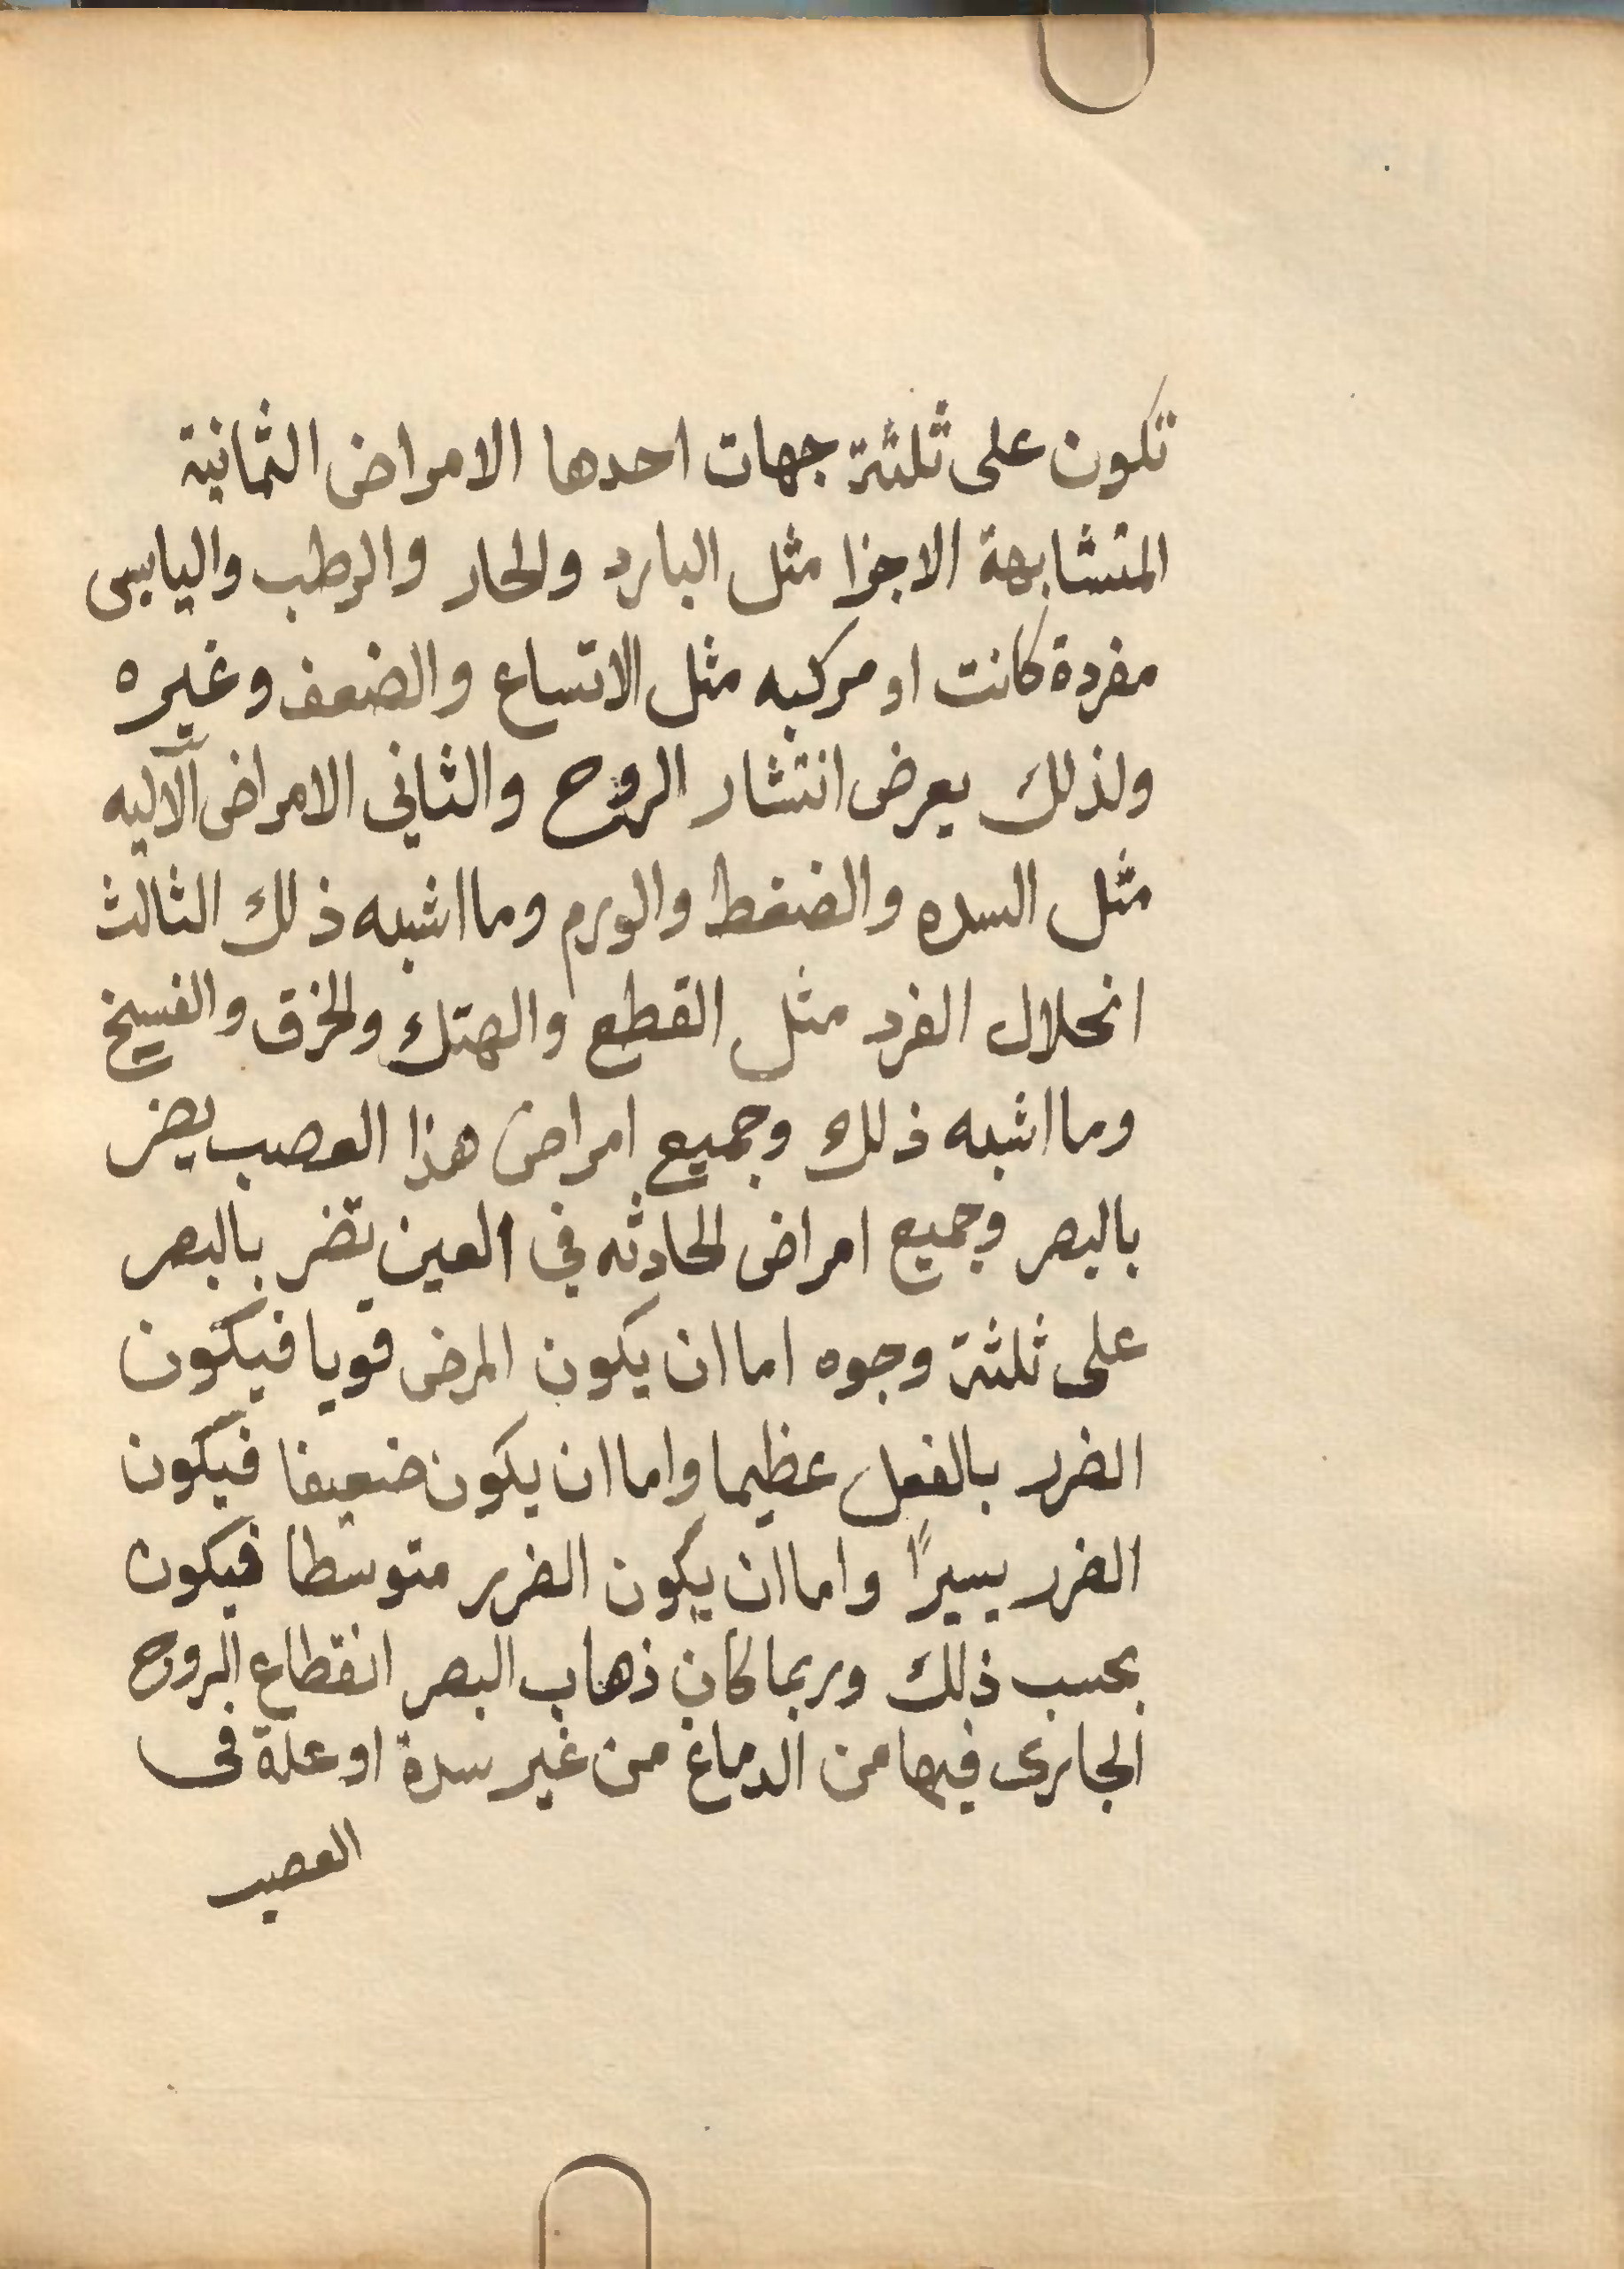 تكون على ثلثة جهات احدها الامراض الثمانية
المتشابهة الاجزا مثل البارد والحار والرطب واليابس
مفردة كانت او مركبه مثل الاتساع والضعف وغيره
ولذلك يعرض انتشار الروح والثاني الامراض الآليه
مثل السده والضغط والورم وما اشبه ذلك الثالث
انحلال الفرد مثل القطع والهتك والخرق والفسخ
وما اشبه ذلك وجميع امراض هذا العصب يضر
بالبصر وجميع امراض الحادثه في العين تضر بالبصر
على ثلثة وجوه اما ان يكون المرض قويا فيكون
الضرر بالفعل عظيما واما ان يكون ضعيفا فيكون
الضرر يسيرًا واما ان يكون الضرر متوسطا فيكون
بحسب ذلك وربما كان ذهاب البصر انقطاع الروح
الجارى فيها من الدماغ من غير سدة او علة فى
العصب